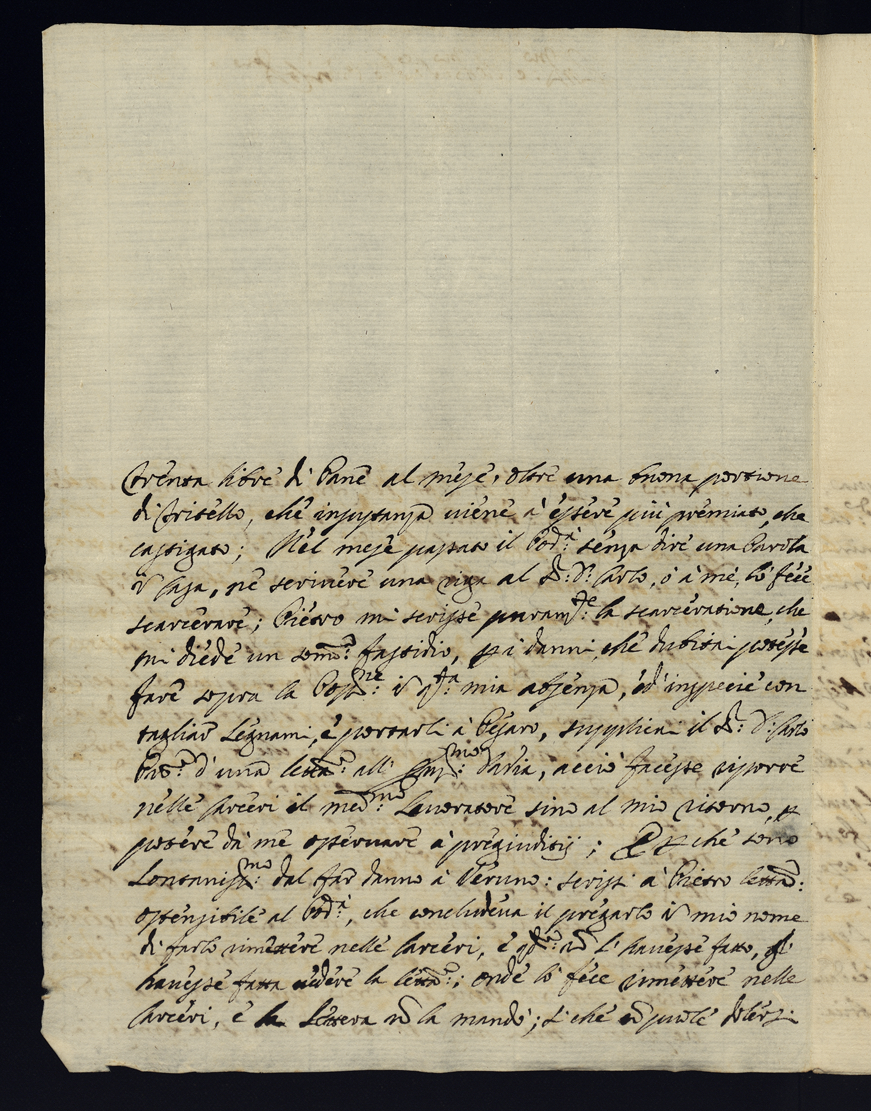 trenta libre di Pane al mese, oltre una buona portione
di Tritello, che in sustanza viene à essere più premiato, che
castigato; Nel mese passato il Pod:à senza dire una Parola
in Casa, ne scrivere una riga al S:r D: Carlo, ò à me, lo fece
scarcerare; Pietro mi scrisse puram:te la scarceratione, che
mi diede un som:o fastidio, p i danni, che dubitai potesse
fare sopra la Poss:ne in q:sta mia absenza, ed' in specie con
tagliar Legnami, è portarli à Pesaro, supplicai il S:r D: Carlo
d'una lett:a all' acciò facesse riporre
nelle Carceri il med:mo Lavoratore sino al mio ritorno, p
potere da me osservare i pregiuditij; E p che sono
Lontaniss:mo dal far danno à Veruno: scrissi à Pietro lettra:
ostensibile al Pod:à, che concludeva il pregarlo in mio nome
di farlo rimettere nelle Carceri, è nõ l'havesse fatto, gli
havesse fatta vedere la lett:a; onde lo fece rimettere nelle
Carceri, è la Lettera nõ la mandò; si che nõ puole dolersi